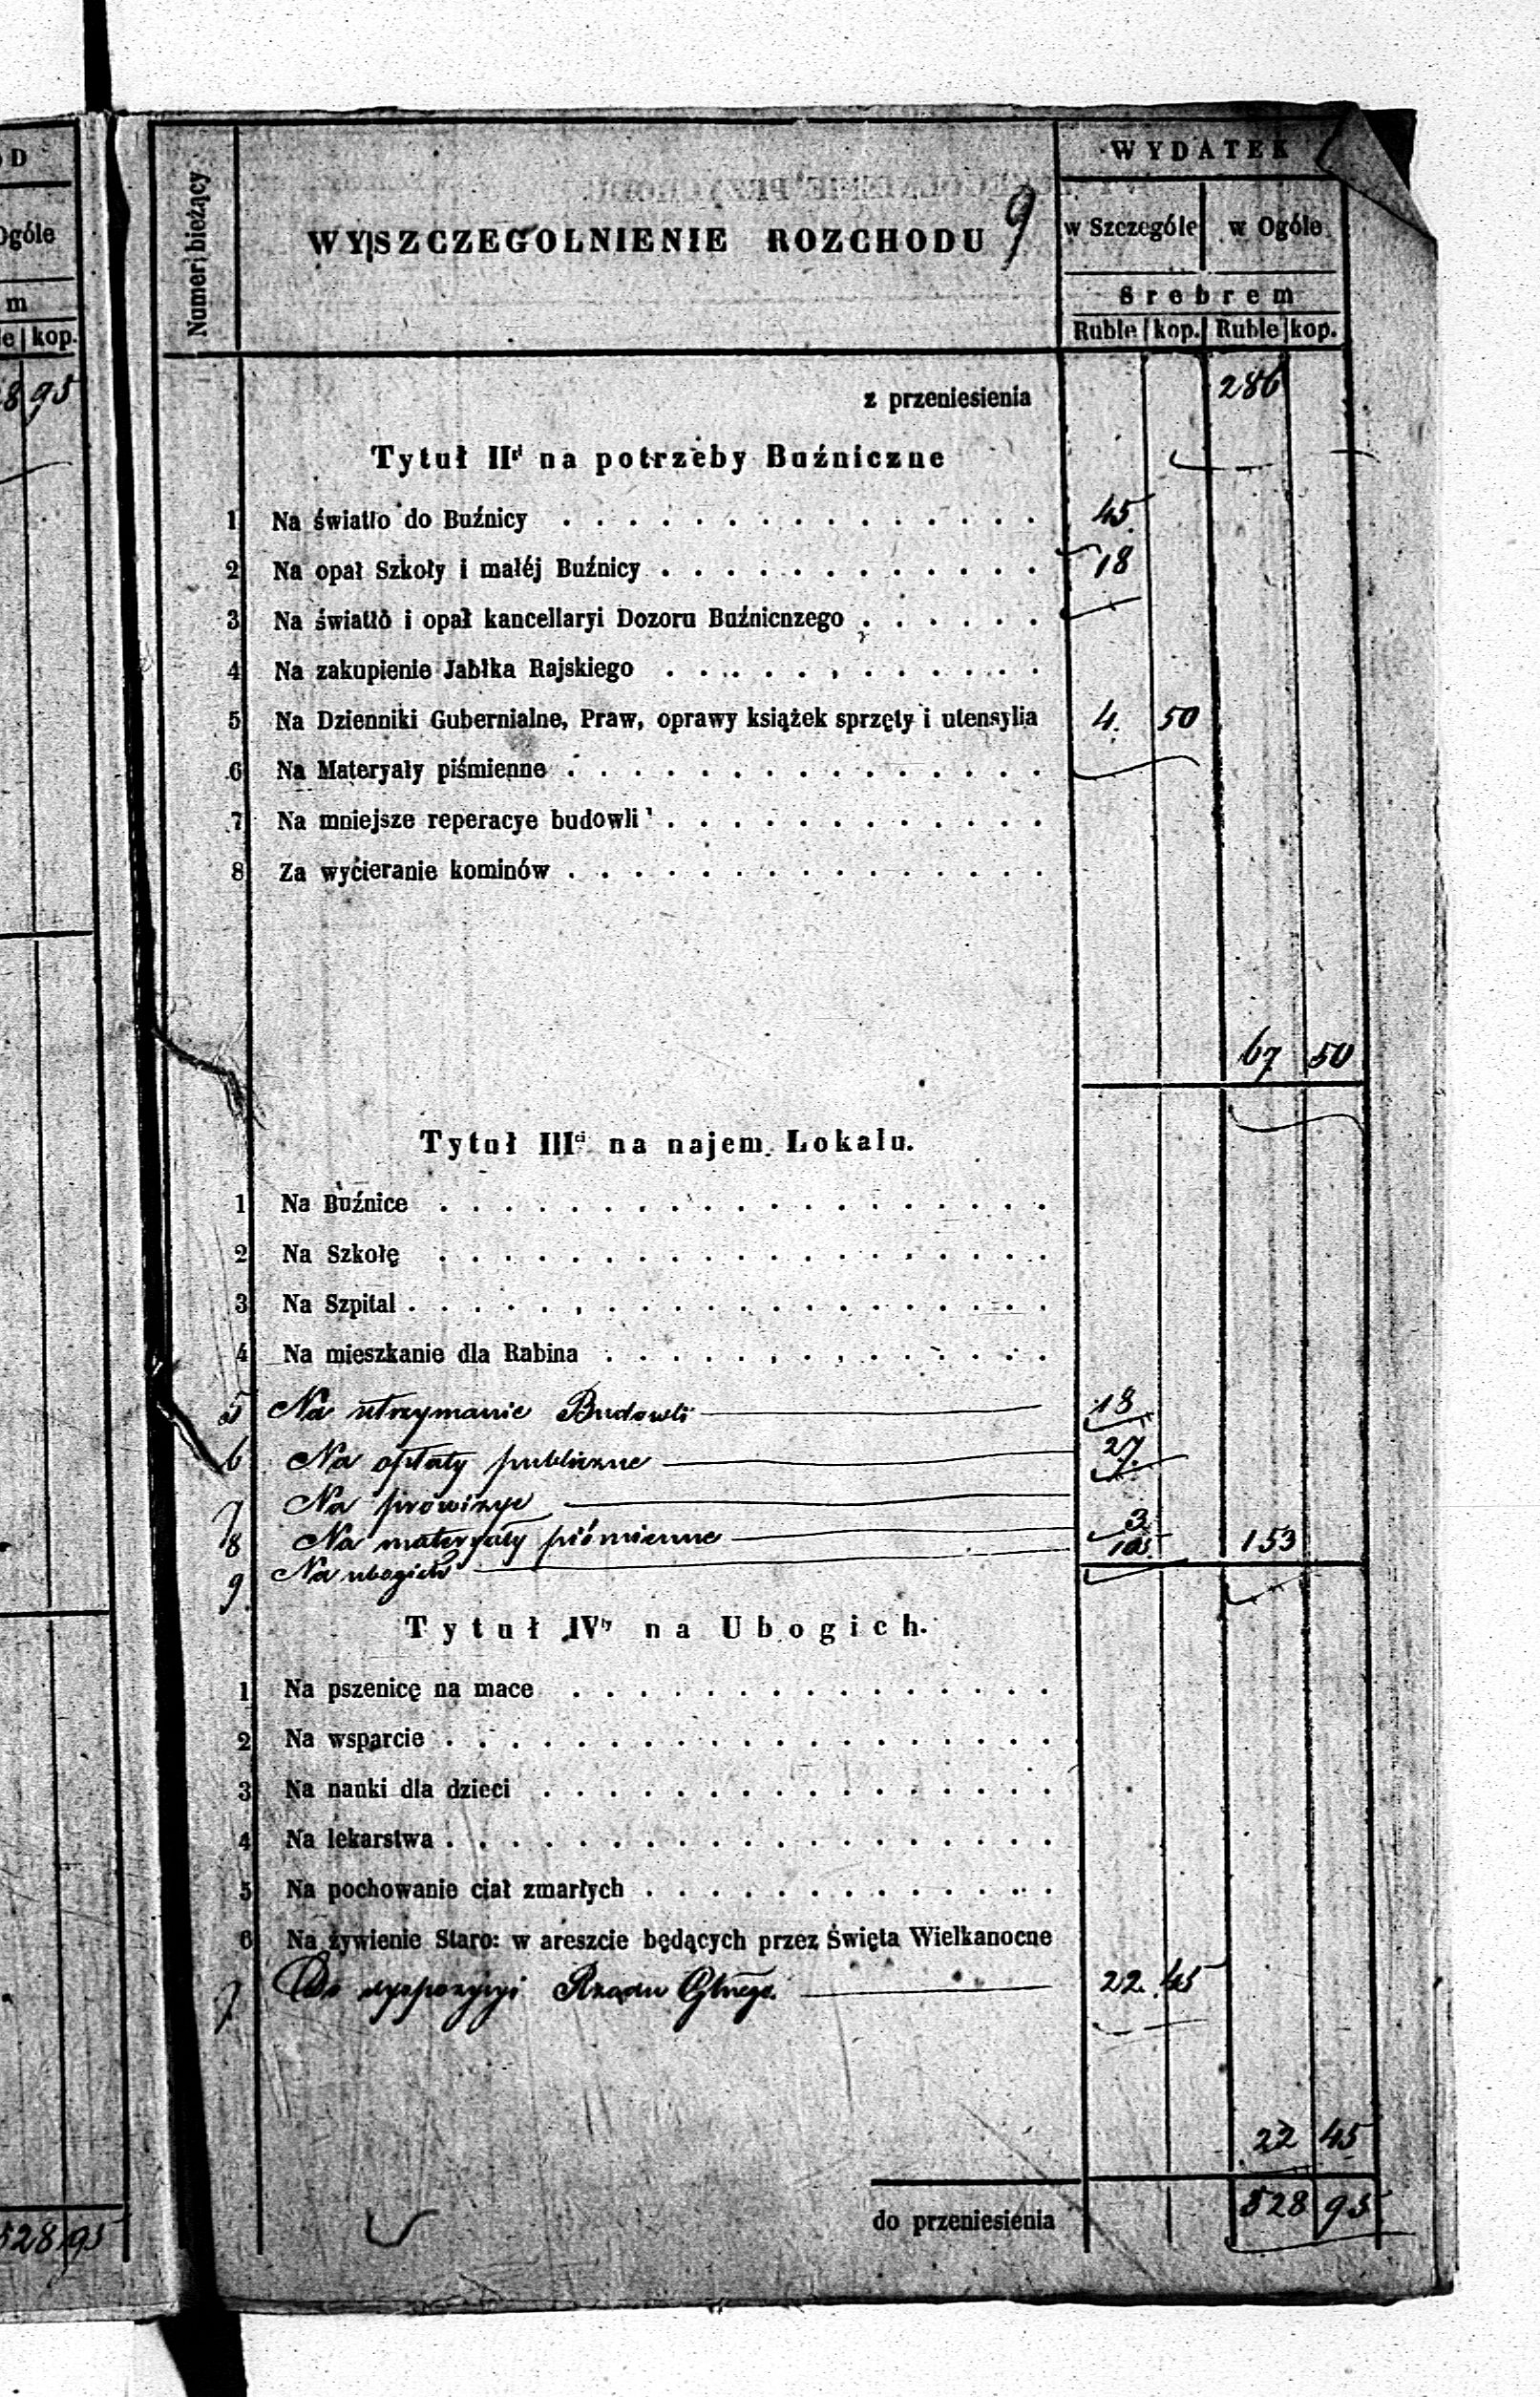 D
Ogóle
m
le kop.
8 95
528 95
Numer bieżący
WYSZCZEGÓLNIENIE ROZCHODU
9
WYDATEK
w Szczególe w Ogóle
Srebrem
Ruble kop. Ruble kop.
z przeniesienia 286
Tytuł IIi na potrzeby Buźniczne
1 Na światło do Buźnicy 45
2 Na opał Szkoły i małéj Buźnicy 18
3 Na światło i opał kancellaryi Dozoru Buźnicnzego
4 Na zakupienie Jabłka Rajskiego
5 Na Dzienniki Gubernialne, Praw, oprawy książek sprzęty i utensylia 4. 50
6 Na Materyały piśmienne
7 Na mniejsze reperacye budowli
8 Za wycieranie kominów
67 50
Tytuł IIIci na najem Lokalu.
1 Na Buźnice
2 Na Szkołę
3 Na Szpital
4 Na mieszkanie dla Rabina
5 Na utrzymanie Budowli 18
6 Na opłaty publiczne 27.
7 Na prowizye
8 Na materyały piśmienne 3
9 Na ubogich 105. 153
Tytuł IVty na Ubogich.
1 Na pszenicę na mace
2 Na wsparcie
3 Na nauki dla dzieci
4 Na lekarstwa
5 Na pochowanie ciał zmarłych
6 Na żywienie Staro: w areszcie będących przez Święta Wielkanocne
7 Do dyspozycyi Rządu Glnego. 22. 45
22 45
do przeniesienia 528 95